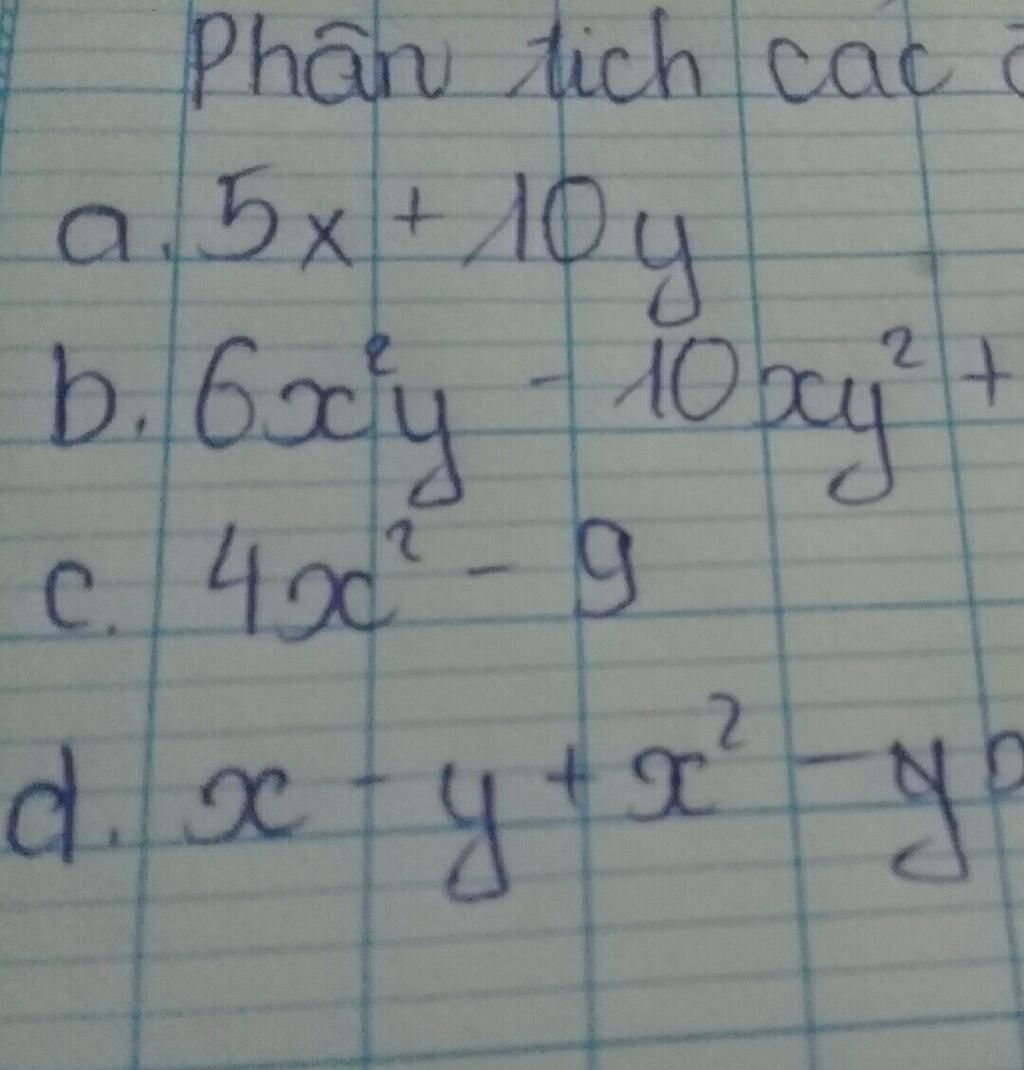 Phân tích các
a. 5x + 10y
b. 6x²y - 10xy² +
c. 4x² - 9
d. x - y + x² - y